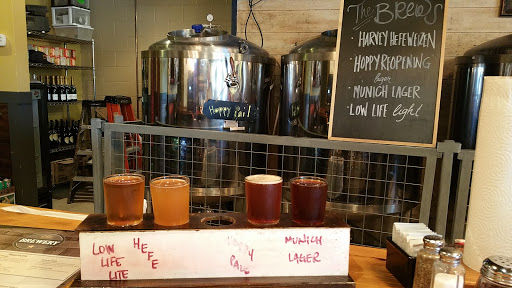 The BREWS
HARVEY HEFEWEIZEN
HOPPY REOPENING
MUNICH LAGER
LOW LIFE light
Hoppy Pail
BREWERY
LOW
LIFE
LITE
HEFE
HOPPY
PALE
MUNICH
LAGER